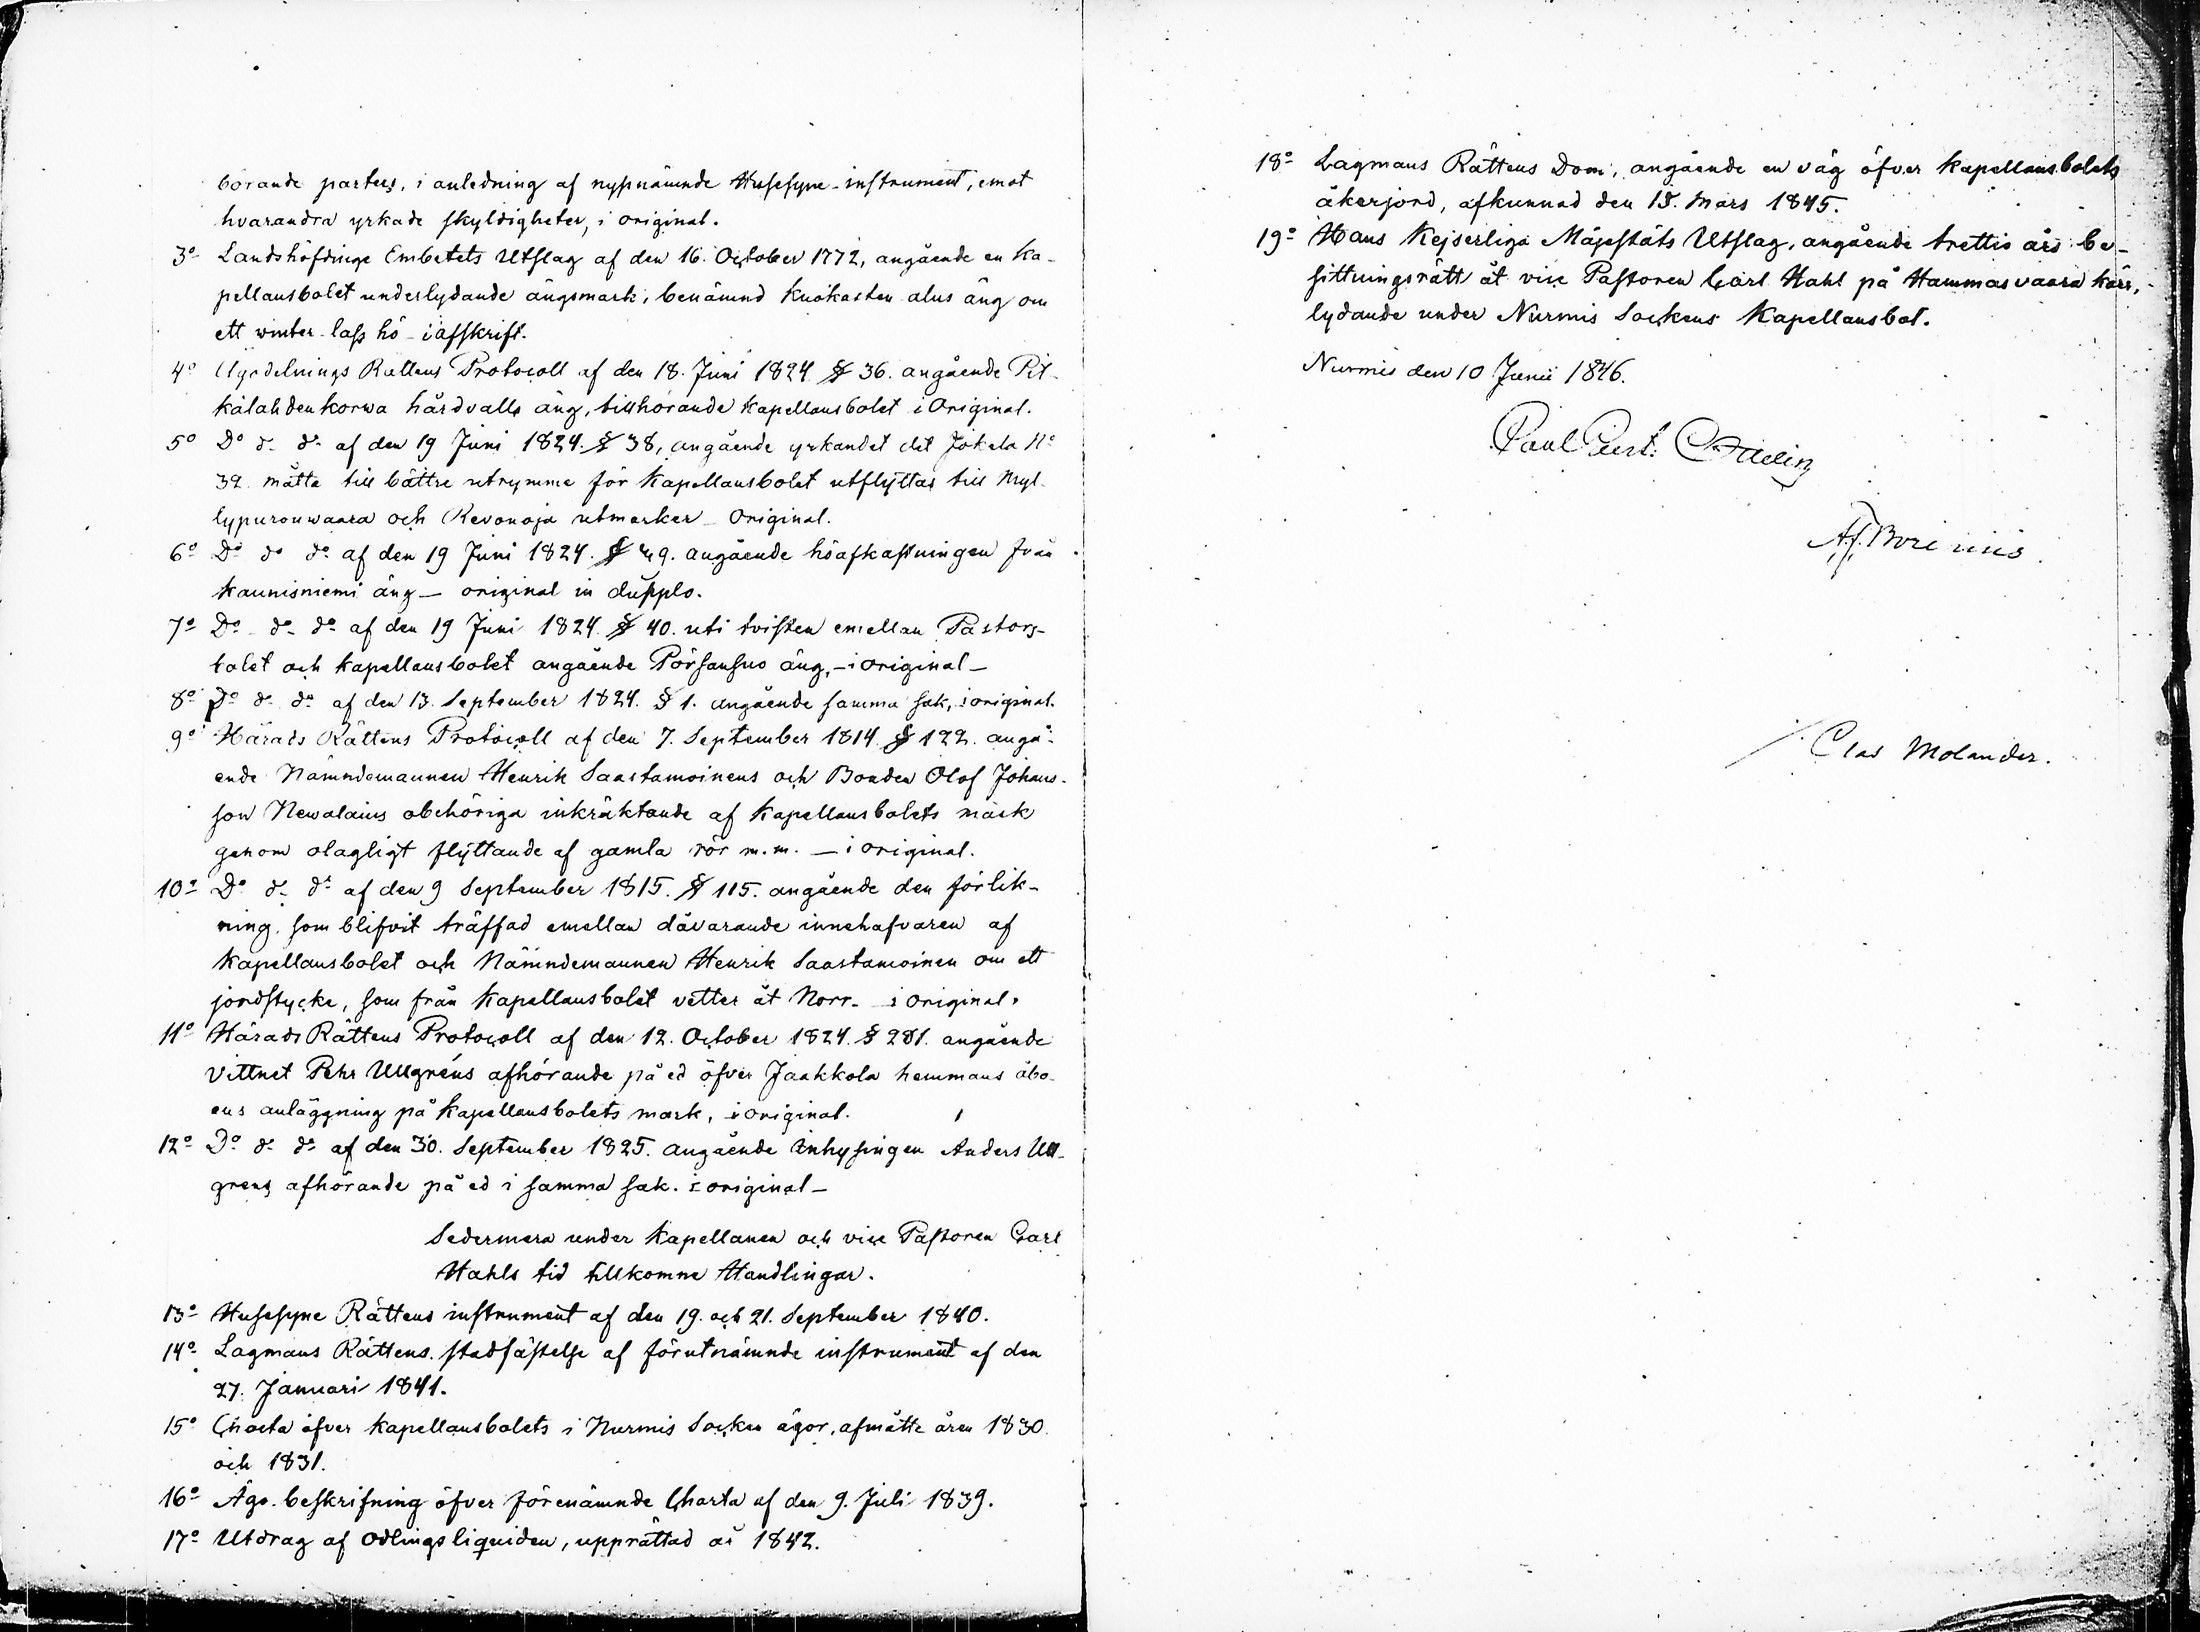 börande parters, i anledning af nyssnämnde Husesyne-instrument, emot
hvarandra yrkade skyldigheter, i original.
3º Landshöfdinge Embetets Utslag af den 16. October 1772, angående en Ka-
pellansbolet underlydande ängsmark, benämnd Kuokasten alus äng om
ett winter-lass hö - i afskrift.
4º Ägodelnings Rättens Protocoll af den 18. Juni 1824 § 36. angående Pit-
kälahdenkorwa hårdvalls äng, tillhörande Kapellansbolet i Original.
5º Dº dº dº af den 19 Juni 1824. § 38, angående yrkandet det Jokela Nº
39. måtte till bättre utrymme för Kapellansbolet utflyttas till Myl-
lypuronwaara och Revonoja utmarker - Original.
6º Dº dº dº af den 19 Juni 1824. § 49. angående höafkastningen från
Kaunisniemi äng — original in dupplo.
7º Dº dº dº af den 19 Juni 1824. § 40. uti tvisten emellan Pastors-
bolet och Kapellansbolet angående Pörsansuo äng, - i original -
8º Dº dº dº af den 13. September 1824. § 1. angående samma sak, i original.
9º Härads Rättens Protocoll af den 7. September 1814. § 122. angå-
ende Nämndemannen Henrik Saastamoinens och Bonden Olof Johans-
son Newalains obehöriga inkräktande af Kapellansbolets mark
genom olagligt flyttande af gamla rör m.m. — i original.
10º Dº dº dº af den 9 September 1815. § 115. angående den förlik-
ning, som blifvit träffad emellan dåvarande innehafvaren af
Kapellansbolet och Nämndemannen Henrik Saastamoinen om ett
jordstycke, som från Kapellansbolet vetter åt Norr - i original.
11º Härads Rättens Protocoll af den 12. October 1824. § 281. angående
Vittnet Pehr Ullgréns afhörande på ed öfver Jaakkola hemmans åbo-
ens anläggning på Kapellansbolets mark, i original.
12º Dº dº dº af den 30. September 1825. angående Inhysingen Anders Ull-
grens afhörande på ed i samma sak. i original -
Sedermera under Kapellanen och vice Pastoren Carl
Hahls tid tillkomne Handlingar.
13º Husesyne Rättens instrument af den 19. och 21. September 1840.
14º Lagmans Rättens stadfästelse af förutnämnde instrument af den
27. Januari 1841.
15º Charta öfver Kapellansbolets i Nurmis Socken ägor, afmätte åren 1830
och 1831.
16º Ägo-beskrifning öfver förenämnde Charta af den 9. Juli 1839.
17º Utdrag af Odlingsliquiden, upprättad år 1842.
18º Lagmans Rättens Dom, angående en väg öfver Kapellansbolets
åkerjord, afkunnad den 15. Mars 1845.
19º Hans Kejserliga Majestäts Utslag, angående trettio års be-
sittningsrätt åt vice Pastoren Carl Hahl på Hammasvaara kärr,
lydande under Nurmis Sockens Kapellansbol.
Nurmis den 10 Junii 1846.
Paul
Clas Molander.